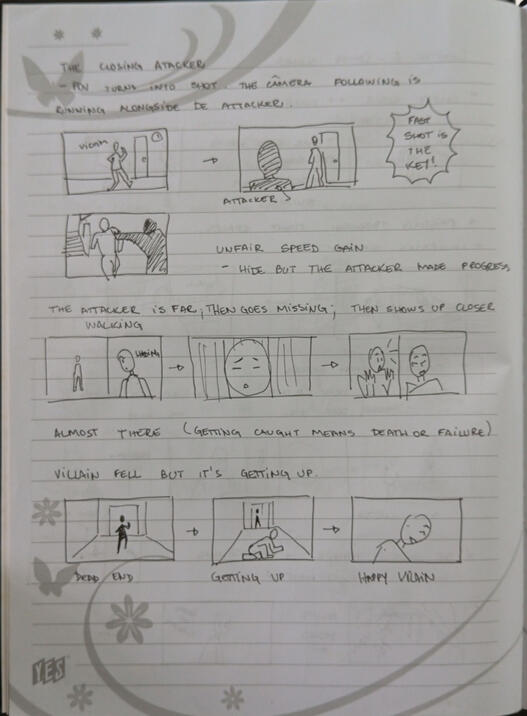 THE CLOSING ATACKER
- POV TURNS INTO SHOT. THE CAMERA FOLLOWING IS
RUNNING ALONGSIDE DE ATTACKER.
VICTIM
FAST
SHOT IS
THE
KEY!
ATTACKER
UNFAIR SPEED GAIN
- HIDE BUT THE ATTACKER MADE PROGRESS
THE ATTACKER IS FAR; THEN GOES MISSING; THEN SHOWS UP CLOSER
WALKING
ALMOST THERE (GETTING CAUGHT MEANS DEATH OR FAILURE)
VILLAIN FELL BUT IT'S GETTING UP.
DEAD END
GETTING UP
HAPPY
YES